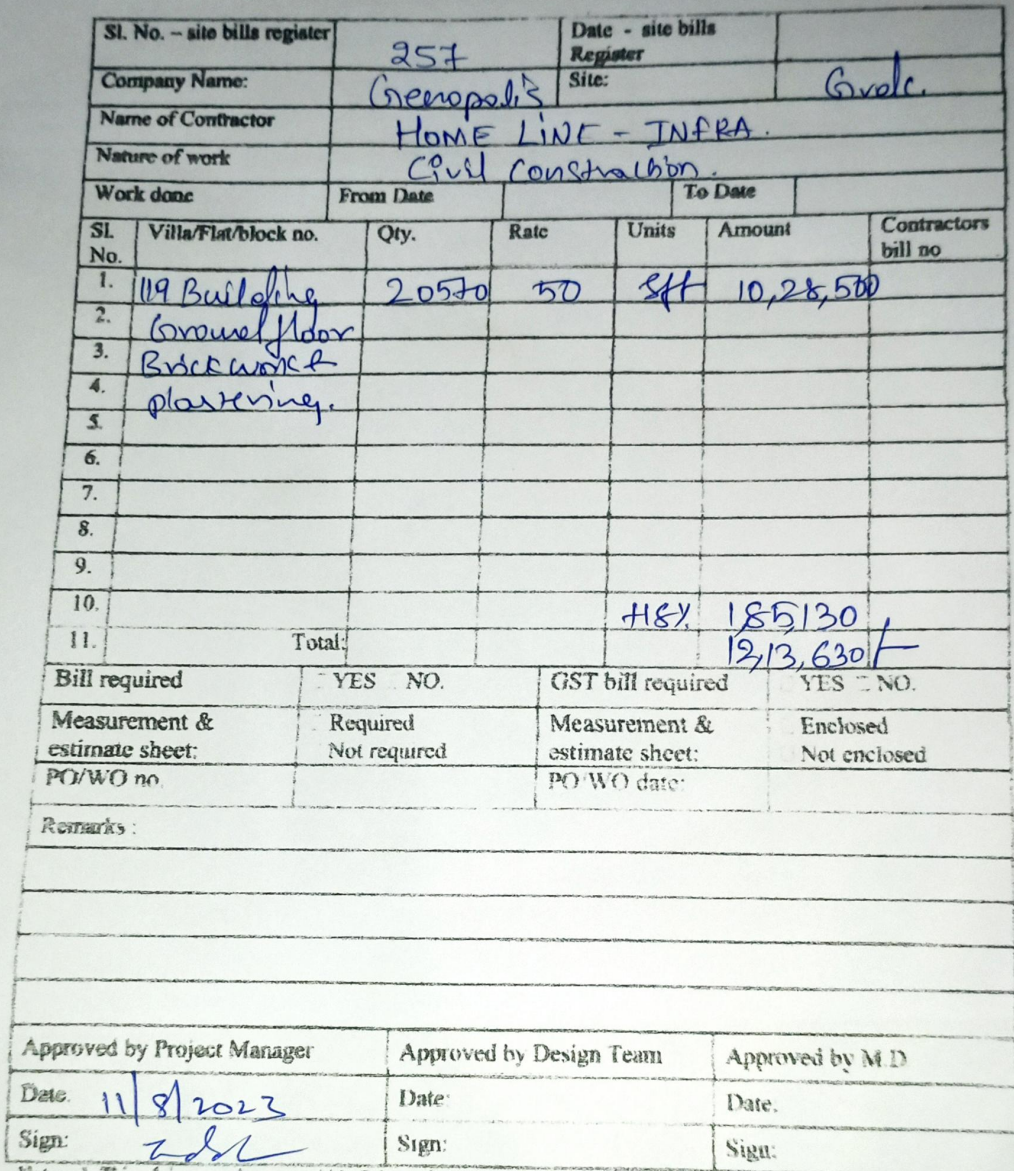 Sl. No. – site bills register 257 Date - site bills Register
Company Name: Genopolis Site: Gvdc.
Name of Contractor HOME LINE - INFRA.
Nature of work Civil Construction.
Work done From Date To Date
Sl. No. Villa/Flat/block no. Qty. Rate Units Amount Contractors bill no
1. 119 Building 20570 50 Sft 10,28,500
2. Ground floor
3. Brick work &
4. plastering.
5.
6.
7.
8.
9.
10. +18% 1,85,130
11. Total: 12,13,630/-
Bill required YES NO. GST bill required YES NO.
Measurement & estimate sheet: Required Not required Measurement & estimate sheet: Enclosed Not enclosed
PO/WO no. PO/WO date:
Remarks :
Approved by Project Manager Approved by Design Team Approved by M.D
Date. 11/8/2023 Date: Date.
Sign: Sign: Sign: